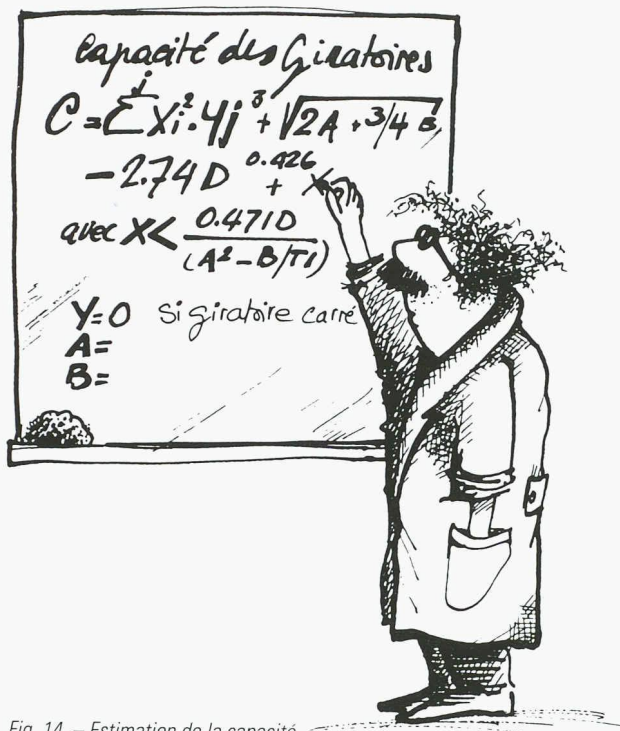 Capacité des Giratoires
C = Σ^j Xi².Yj³ + √2A + 3/4 B
- 2.74D^0.426 + X
avec X < 0.471D
(A² - B/T1)
Y=0 si giratoire carré
A=
B=
Fig. 14. – Estimation de la capacité